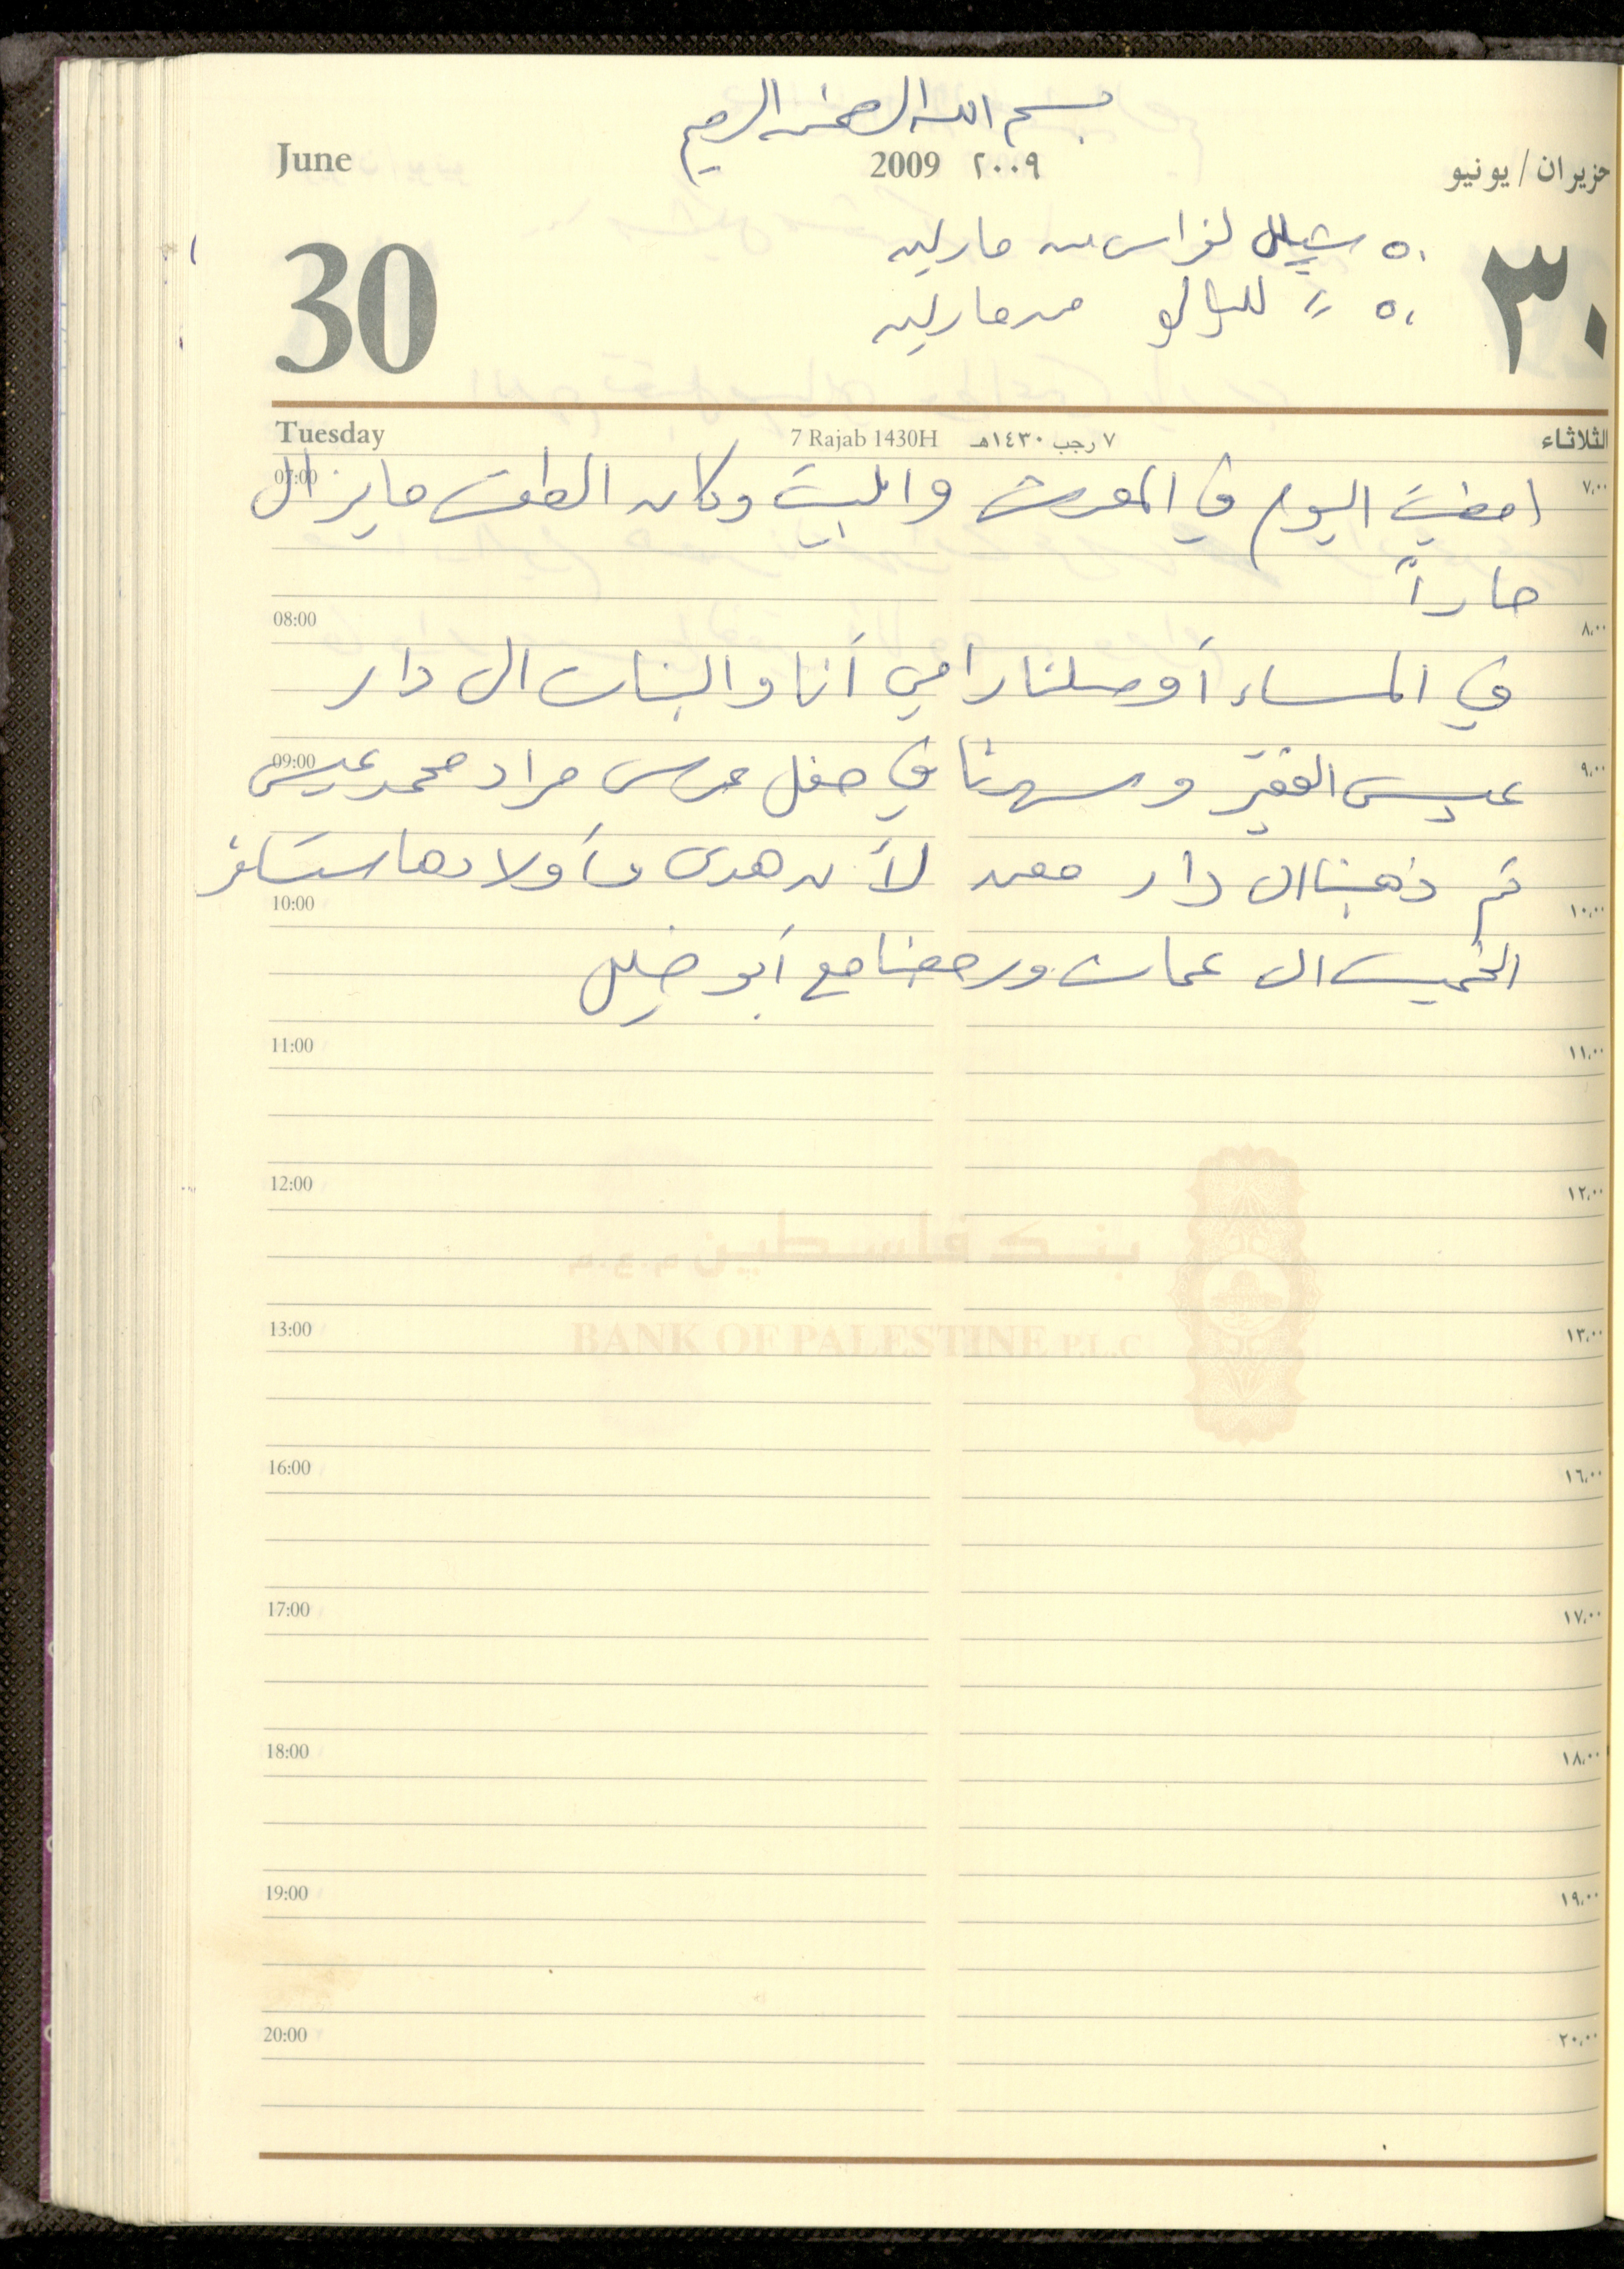 بسم الله الرحمن الرحيم
June 2009 ٢٠٠٩ حزيران / يونيو
30 ٣٠
٥٠ شيكل لفراس من مارلين
٥٠ // للؤلؤ من مارلين
Tuesday 7 Rajab 1430H ٧ رجب ١٤٣٠هـ الثلاثاء
07:00 ٧،٠٠
امضيت اليوم في المعرض والبيت وكان الطقس ما يزال
حاراً
08:00 ٨،٠٠
في المساء أوصلنا رامي أنا والبنات الى دار
09:00 ٩،٠٠
عيسى الفقير وسهرنا في حفل عرس مراد محمد عيسى
ثم ذهبنا الى دار معن لأن هدى وأولادها ستسافر
10:00 ١٠،٠٠
الخميس الى عمان ورجعنا مع أبو خليل
11:00 ١١،٠٠
12:00 ١٢،٠٠
بنك فلسطين م.ع.م
13:00 ١٣،٠٠
BANK OF PALESTINE P.L.C
16:00 ١٦،٠٠
17:00 ١٧،٠٠
18:00 ١٨،٠٠
19:00 ١٩،٠٠
20:00 ٢٠،٠٠